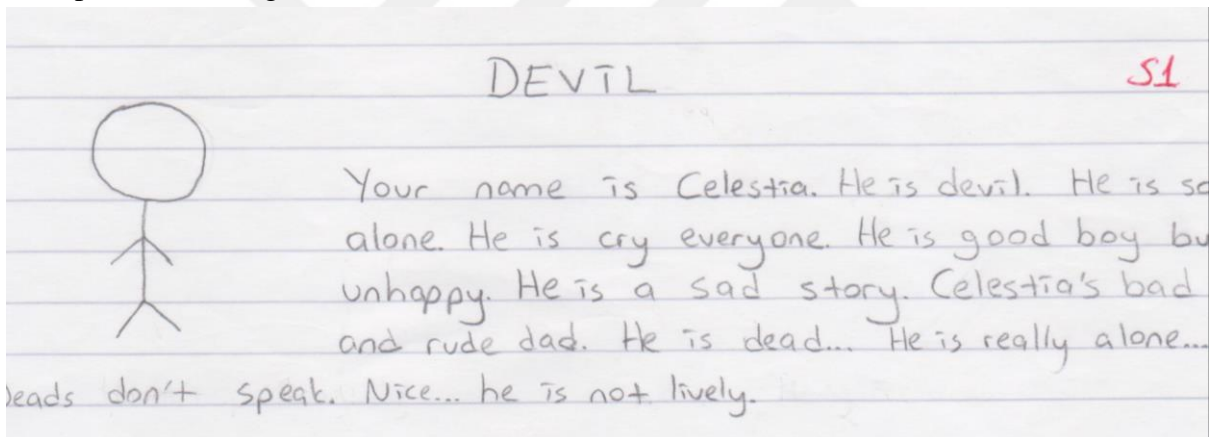 DEVİL
S1
Your name is Celestia. He is devil. He is so
alone. He is cry everyone. He is good boy bu
unhappy. He is a sad story. Celestia's bad
and rude dad. He is dead... He is really alone...
Deads don't speak. Nice... he is not lively.